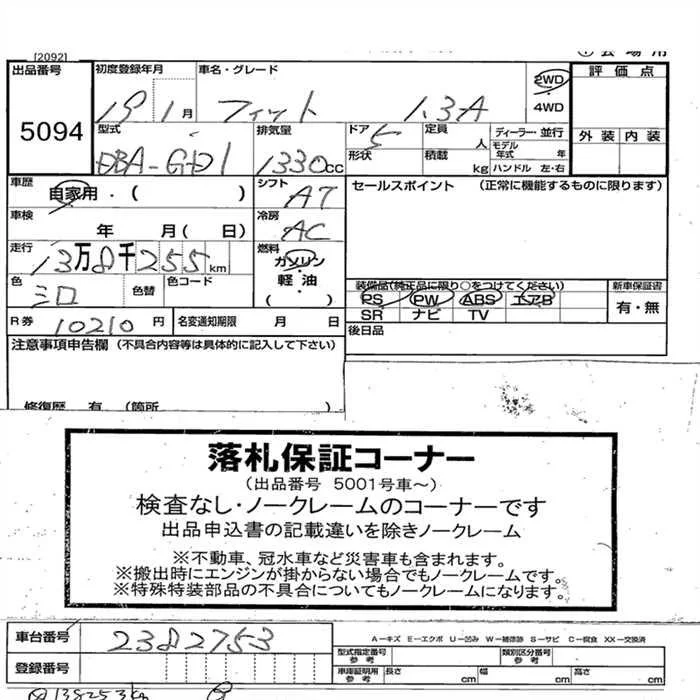 [2092]
出品番号
5094
初度登録年月 19 1 月
車名・グレード フィット 1.3A
2WD
4WD
評価点
外装 内装
型式 DBA-GD1
排気量 1330cc
ドア 5
形状
定員 人
積載 kg
ディーラー・並行
モデル年式 年
ハンドル 左・右
車歴 自家用・( )
シフト AT
セールスポイント (正常に機能するものに限ります)
車検 年 月( 日)
冷房 AC
走行 13万8千255km
燃料 ガソリン
軽油
( )
色 シロ
色替
色コード
装備品(純正品に限り○をつけてください)
PS PW ABS エアB
SR ナビ TV
新車保証書
有・無
R券 10210 円
名変通知期限 月 日
後日品
注意事項申告欄 (不具合内容等は具体的に記入して下さい)
修復歴 有 (箇所 )
落札保証コーナー
(出品番号 5001号車~)
検査なし・ノークレームのコーナーです
出品申込書の記載違いを除きノークレーム
※不動車、冠水車など災害車も含まれます。
※搬出時にエンジンが掛からない場合でもノークレームです。
※特殊特装部品の不具合についてもノークレームになります。
車台番号 2382753
A-キズ E-エクボ U-凹み W-補修跡 S-サビ C-腐食 XX-交換済
型式指定番号 参考
類別区分番号 参考
登録番号
車庫証明用 参考 長さ cm 幅 cm 高さ cm
138253km